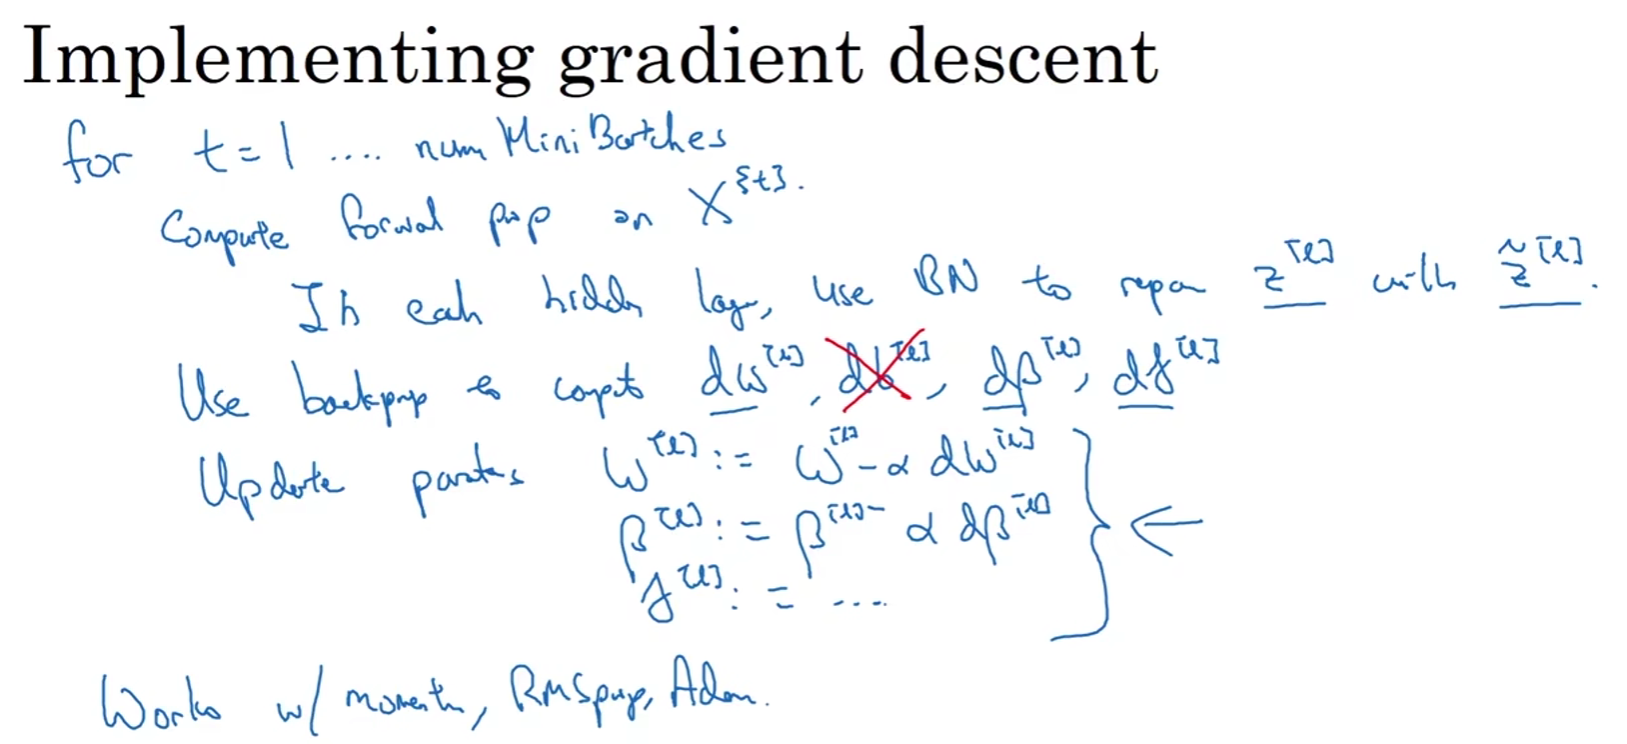 Implementing gradient descent
for t=1 .... num Mini Batches
Compute forwal prop on X^{t}.
In each hidden lay, use BN to repa z^[l] with z̃^[l].
Use backprop to compt dw^[l], db^[l], dβ^[l], dγ^[l]
Update parates w^[l] := w^[l] - α dw^[l]
β^[l] := β^[l] - α dβ^[l]
γ^[l] := ...
Works w/ moment, RMSprop, Adam.